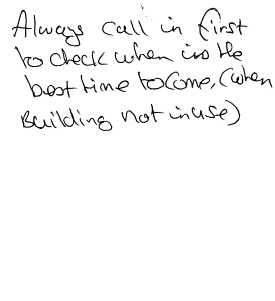 Always call in first
to check when is the
best time to come, (when
Building not in use)